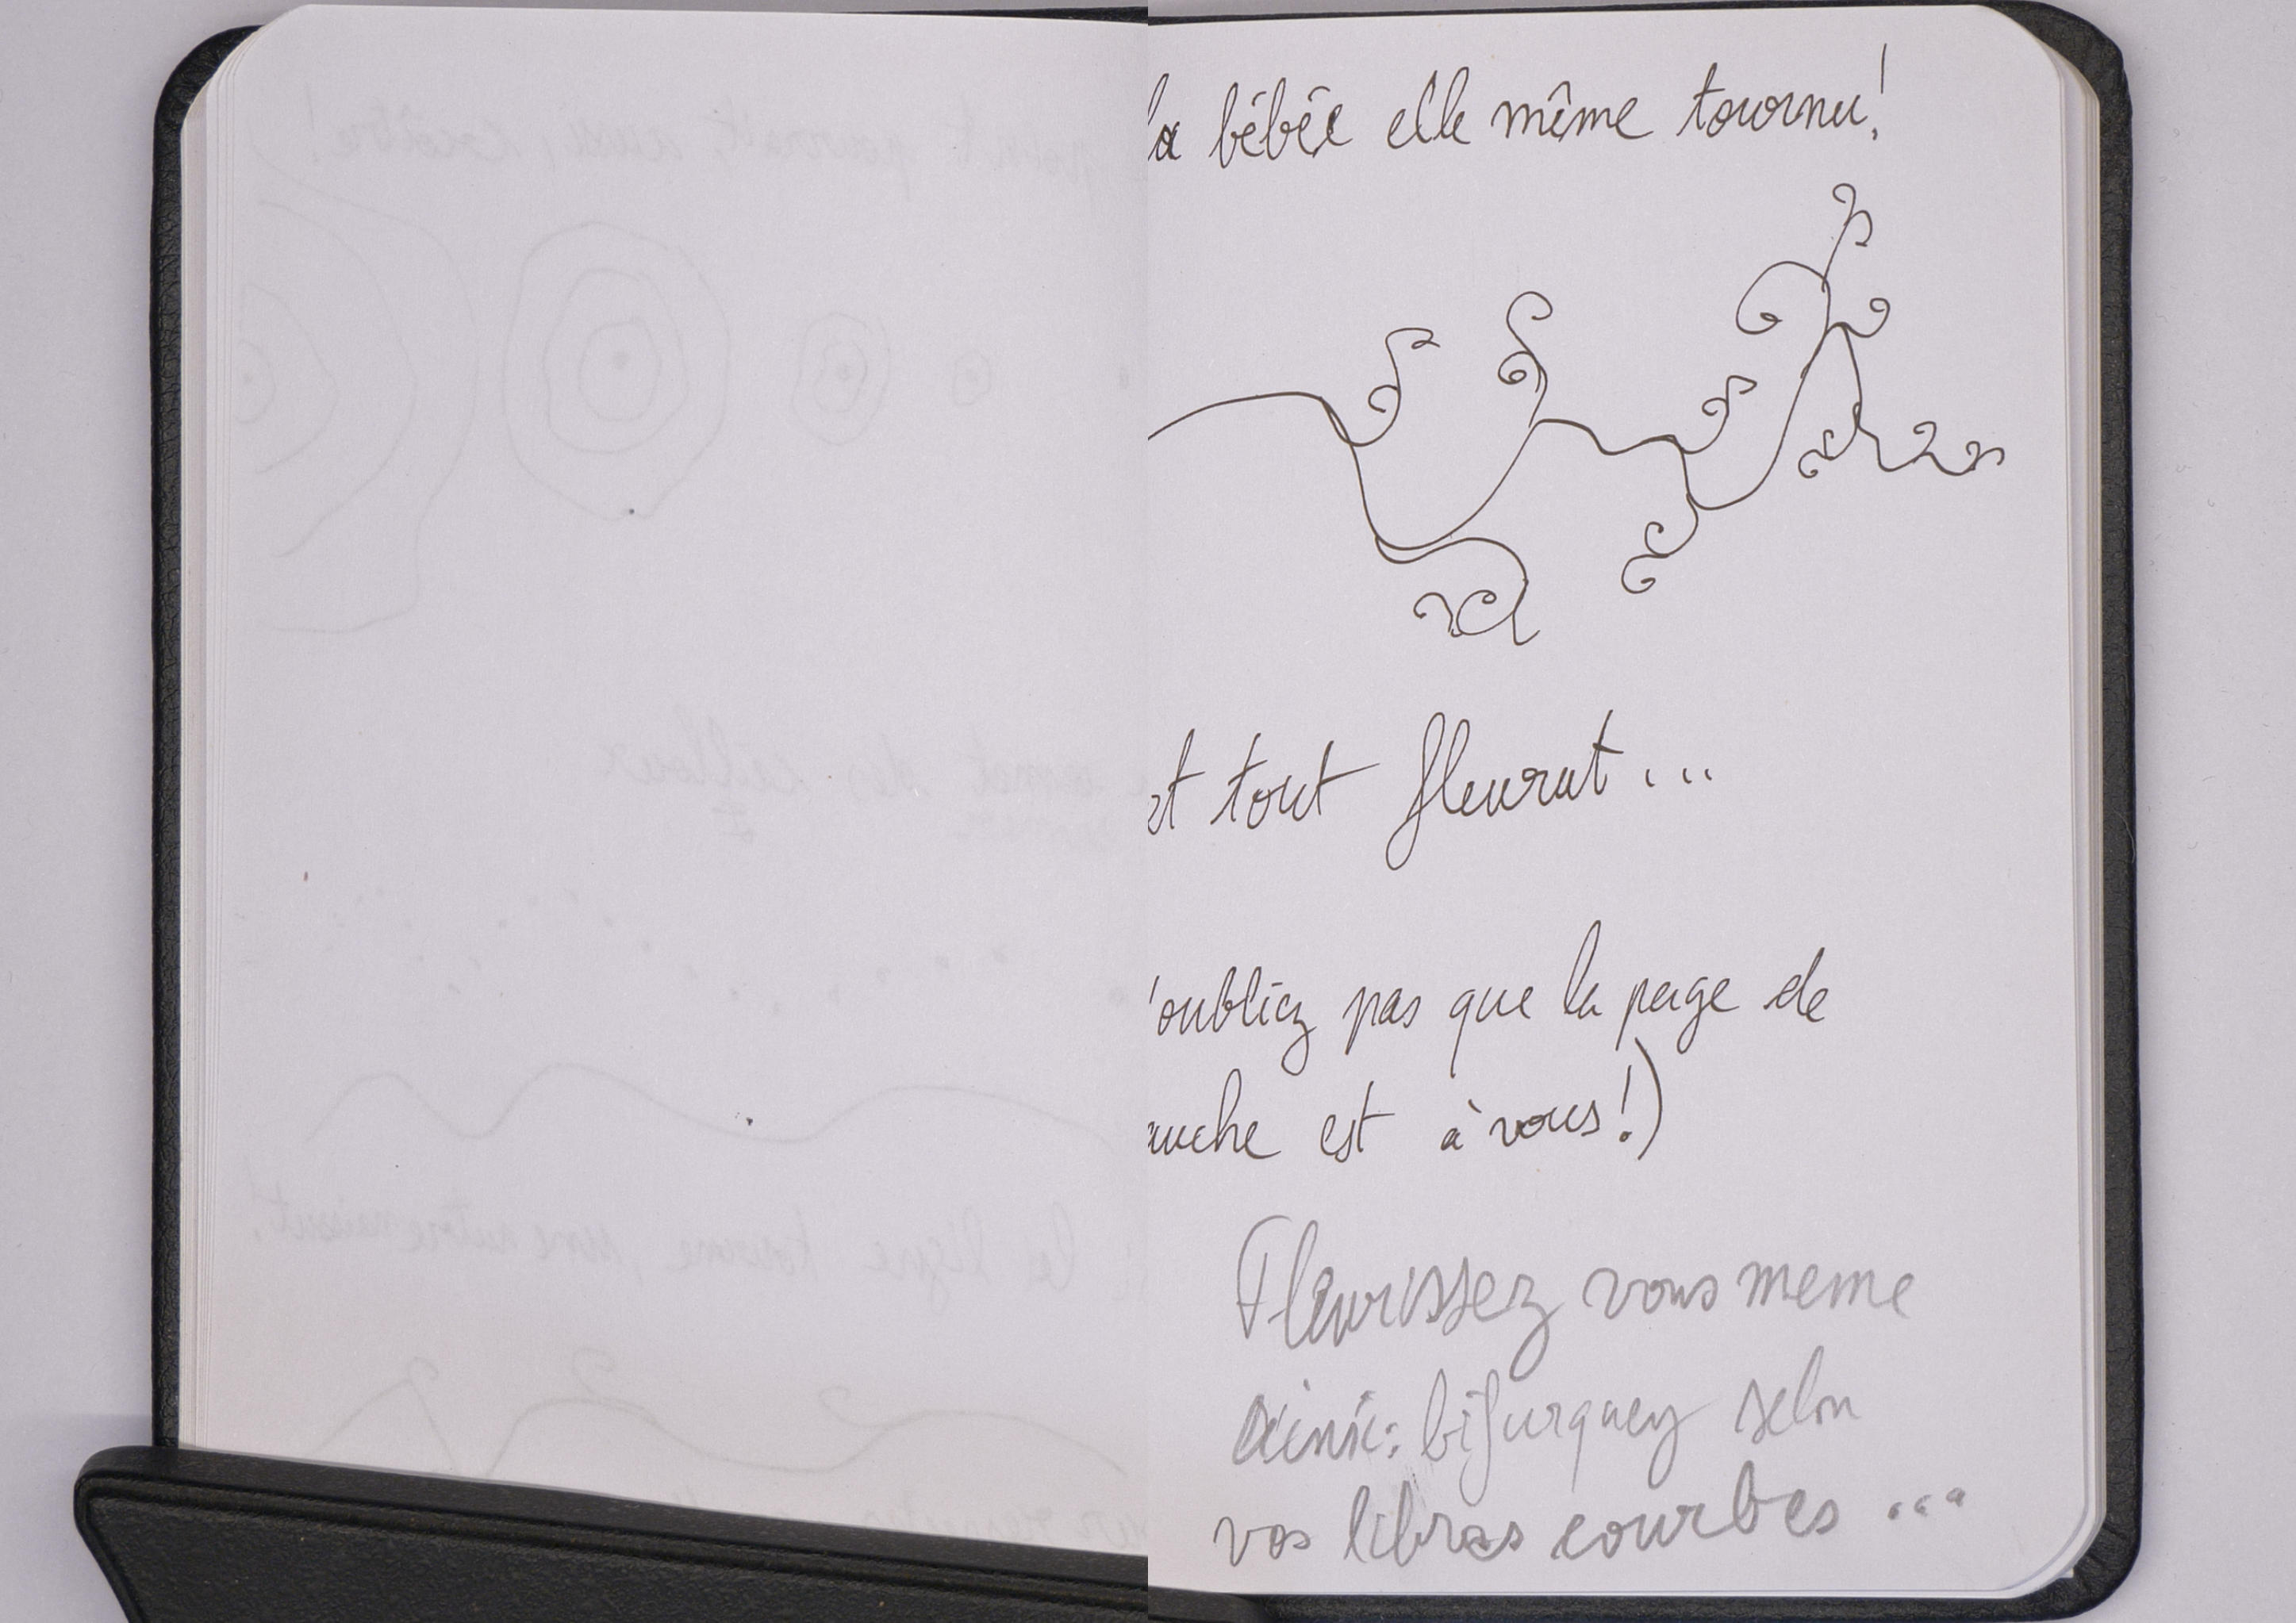 la bébée elle même tournu!
et tout fleurut...
'oubliez pas que la page de
auche est à vous!)
Fleurissez vous meme
ainsi: bifurquez selon
vos libres courbes...